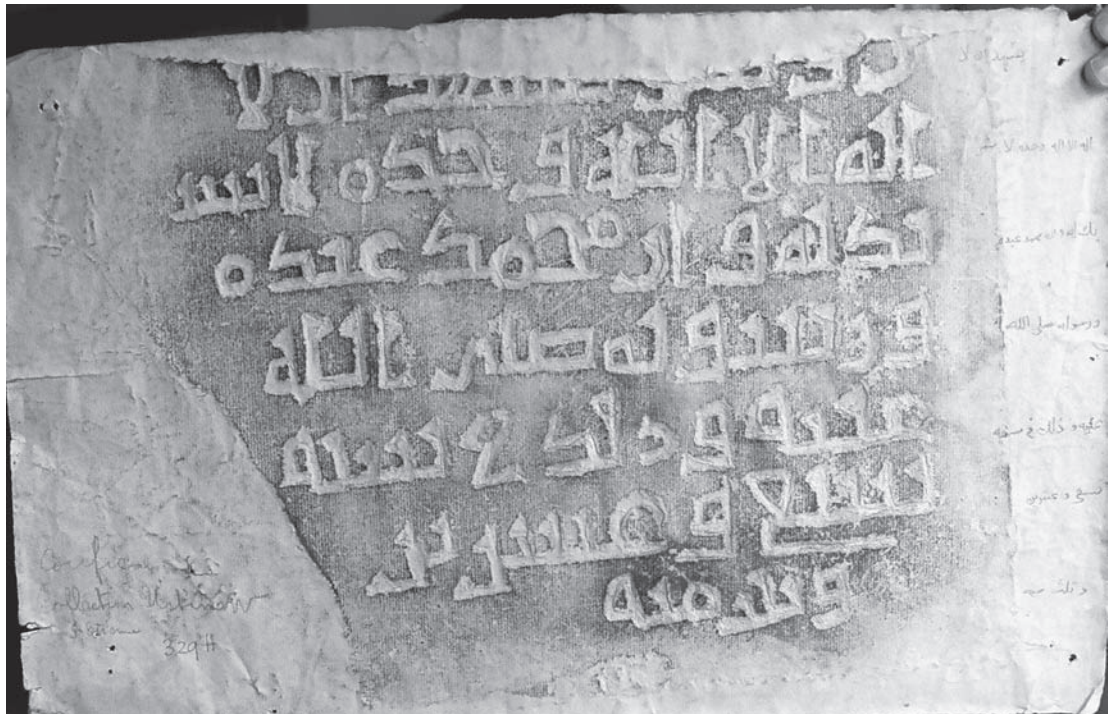 يشهد ان لا
اله الا الله و حده لا شر
يك له و ان محمد عبده
و رسوله صلى الله
عليه و ذلك في سنه
تسع و عشرين
و ثلثمئه
يشهد ان لا
اله الا الله وحده لا شر
يك له وان محمد عبده
ورسوله صلى الله
عليه و ذلك في سنه
تسع و عشرين
و ثلث
Collection Ustinow
329 H